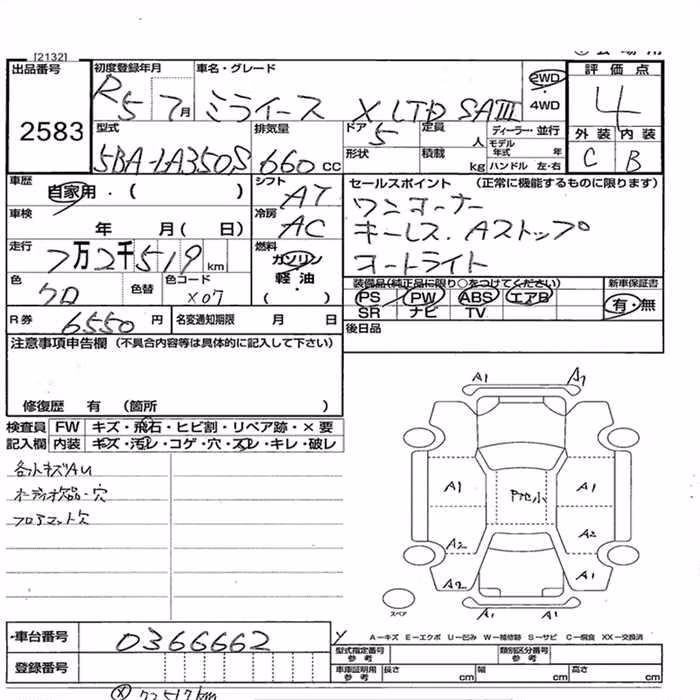 [2132]
出品番号 初度登録年月 車名・グレード 2WD・4WD 評価点
2583 R5 7月 ミライース X LTD SAⅢ 4
型式 排気量 ドア 定員 ディーラー・並行 外装 内装
5BA-LA350S 660cc 5 人 モデル年式 年 C B
形状 積載 kg ハンドル 左・右
車歴 自家用・( ) シフト AT セールスポイント (正常に機能するものに限ります)
車検 年 月( 日) 冷房 AC ワンオーナー
キーレス.Aストップ
オートライト
走行 7万2千519km 燃料 ガソリン
軽油
・( )
色 クロ 色替 色コード X07
装備品(純正品に限り○をつけてください) 新車保証書
PS PW ABS エアB 有・無
SR ナビ TV
R券 6550円 名変通知期限 月 日 後日品
注意事項申告欄 (不具合内容等は具体的に記入して下さい)
修復歴 有 (箇所 )
検査員 FW キズ・飛石・ヒビ割・リペア跡・×要
記入欄 内装 キズ・汚レ・コゲ・穴・スレ・キレ・破レ
各小キズAU
オーディオ欠品・穴
フロアマット欠
A1 A1
A1 P地小 A1
A2 A2
A2 A1
A1 A1
スペア
A-キズ E-エクボ U-凹み W-補修跡 S-サビ C-腐食 XX-交換済
車台番号 0366662 型式指定番号 参考 類別区分番号 参考
登録番号 車検証記載 参考 長さ cm 幅 cm 高さ cm
72519km